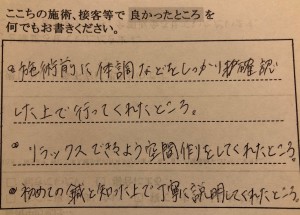 ここちの施術、接客等で良かったところを
何でもお書きください。
•施術前に体調などをしっかり確認
した上で行ってくれたところ。
•リラックスできるよう空間作りをしてくれたところ。
•初めての鍼と知った上で丁寧に説明してくれたところ。